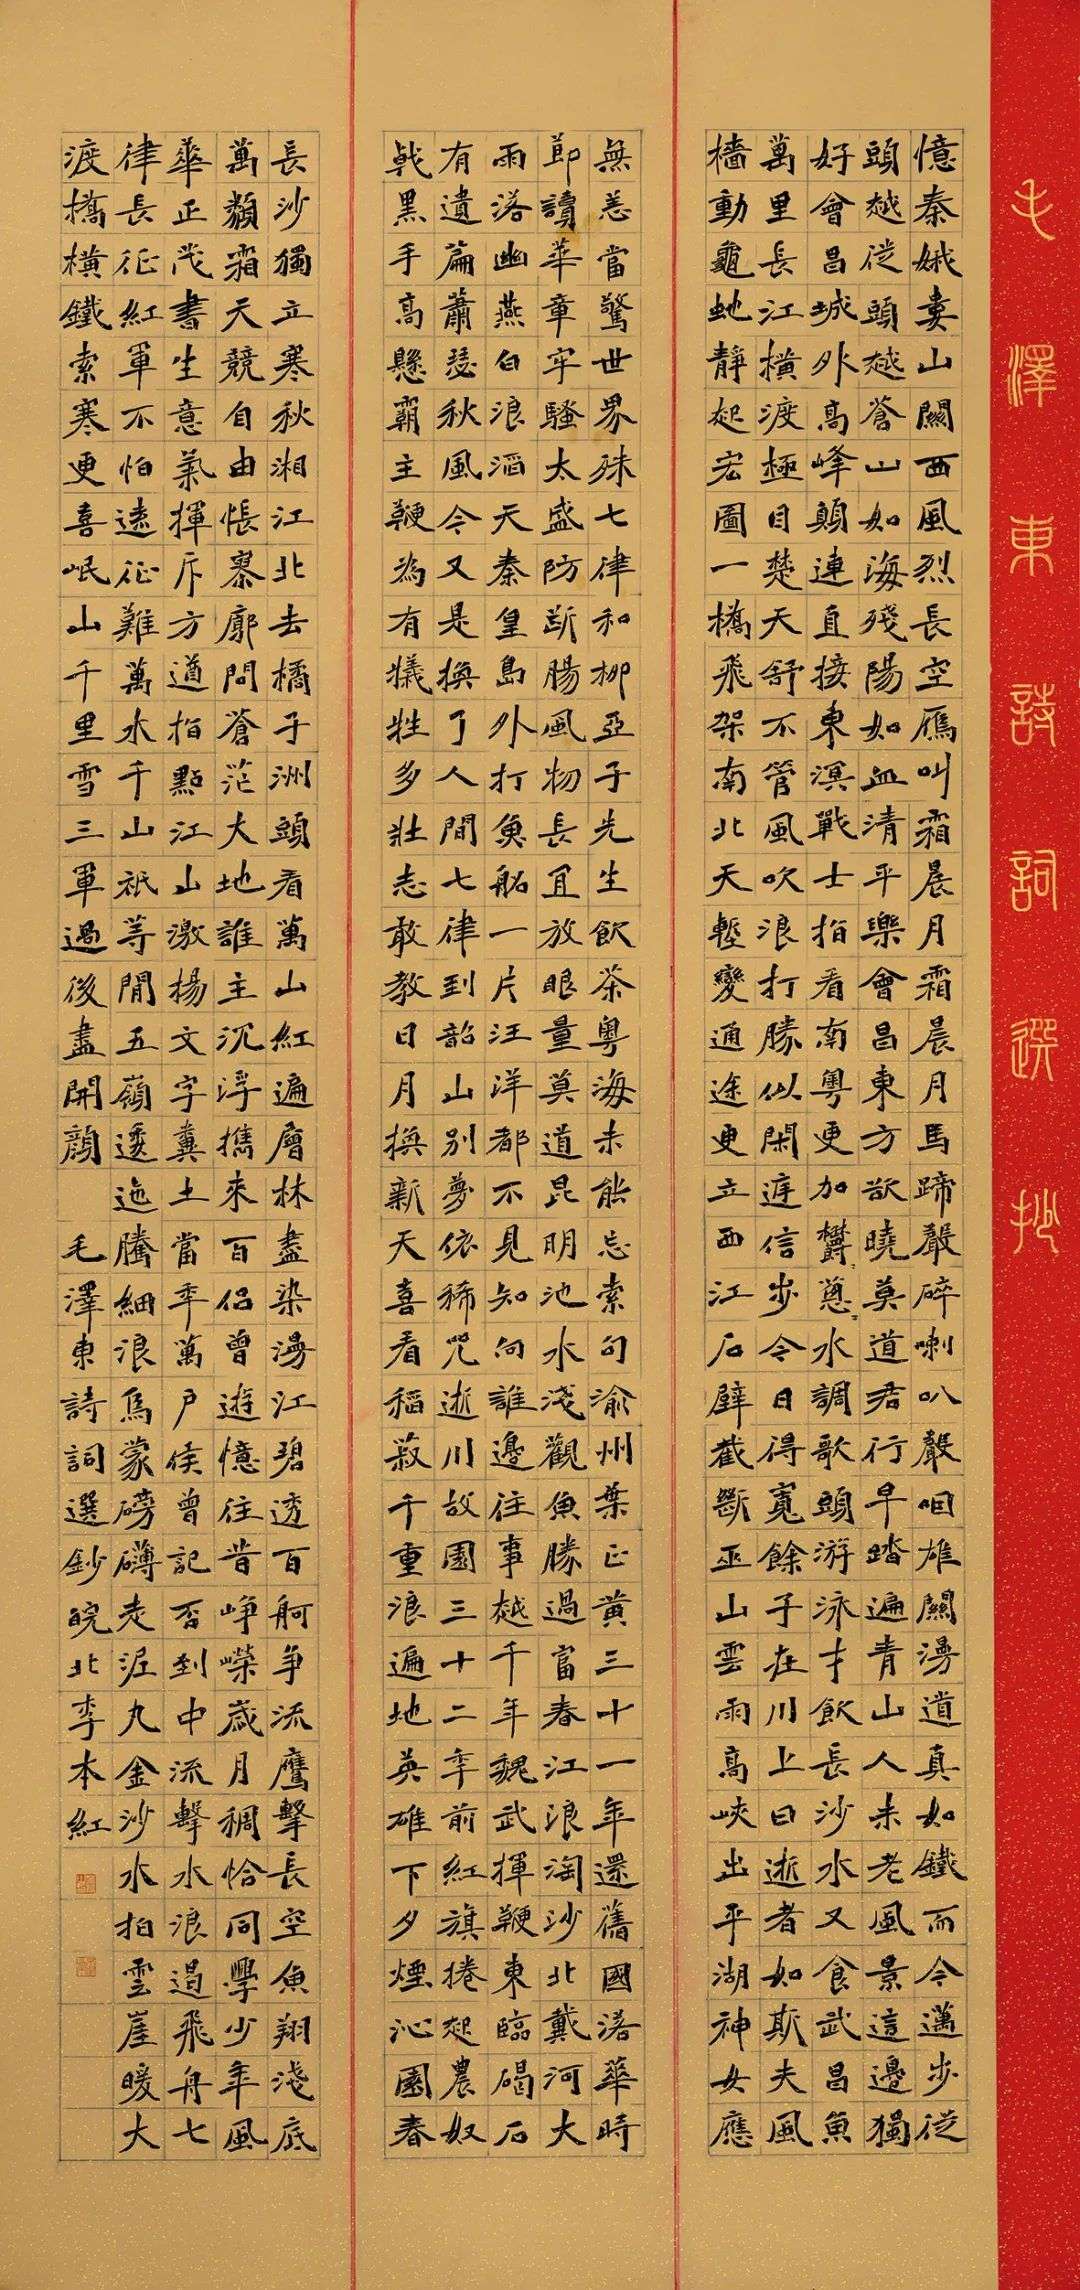 毛澤東詩詞選抄
憶秦娥婁山關西風烈長空雁叫霜晨月霜晨月馬蹄聲碎喇叭聲咽雄關漫道真如鐵而今邁步從
頭越從頭越蒼山如海殘陽如血清平樂會昌東方欲曉莫道君行早踏遍青山人未老風景這邊獨
好會昌城外高峰顛連直接東溟戰士指看南粵更加鬱蔥水調歌頭游泳才飲長沙水又食武昌魚
萬里長江橫渡極目楚天舒不管風吹浪打勝似閑庭信步今日得寬餘子在川上曰逝者如斯夫風
檣動龜蛇靜起宏圖一橋飛架南北天塹變通途更立西江石壁截斷巫山雲雨高峽出平湖神女應
無恙當驚世界殊七律和柳亞子先生飲茶粵海未能忘索句渝州葉正黃三十一年還舊國落華時
節讀華章牢騷太盛防斷腸風物長宜放眼量莫道昆明池水淺觀魚勝過富春江浪淘沙北戴河大
雨落幽燕白浪滔天秦皇島外打魚船一片汪洋都不見知向誰邊往事越千年魏武揮鞭東臨碣石
有遺篇蕭瑟秋風今又是換了人間七律到韶山別夢依稀咒逝川故園三十二年前紅旗捲起農奴
戟黑手高懸霸主鞭為有犧牲多壯志敢教日月換新天喜看稻菽千重浪遍地英雄下夕煙沁園春
長沙獨立寒秋湘江北去橘子洲頭看萬山紅遍層林盡染漫江碧透百舸爭流鷹擊長空魚翔淺底
萬類霜天競自由悵寥廓問蒼茫大地誰主沉浮攜來百侶曾遊憶往昔崢嶸歲月稠恰同學少年風
華正茂書生意氣揮斥方遒指點江山激揚文字糞土當年萬戶侯曾記否到中流擊水浪遏飛舟七
律長征紅軍不怕遠征難萬水千山祇等閒五嶺逶迤騰細浪烏蒙磅礴走泥丸金沙水拍雲崖暖大
渡橋橫鐵索寒更喜岷山千里雪三軍過後盡開顏 毛澤東詩詞選鈔皖北李本紅